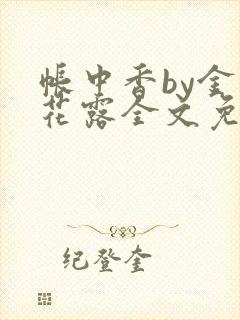 帐中香by金
花露全文免
纪登奎